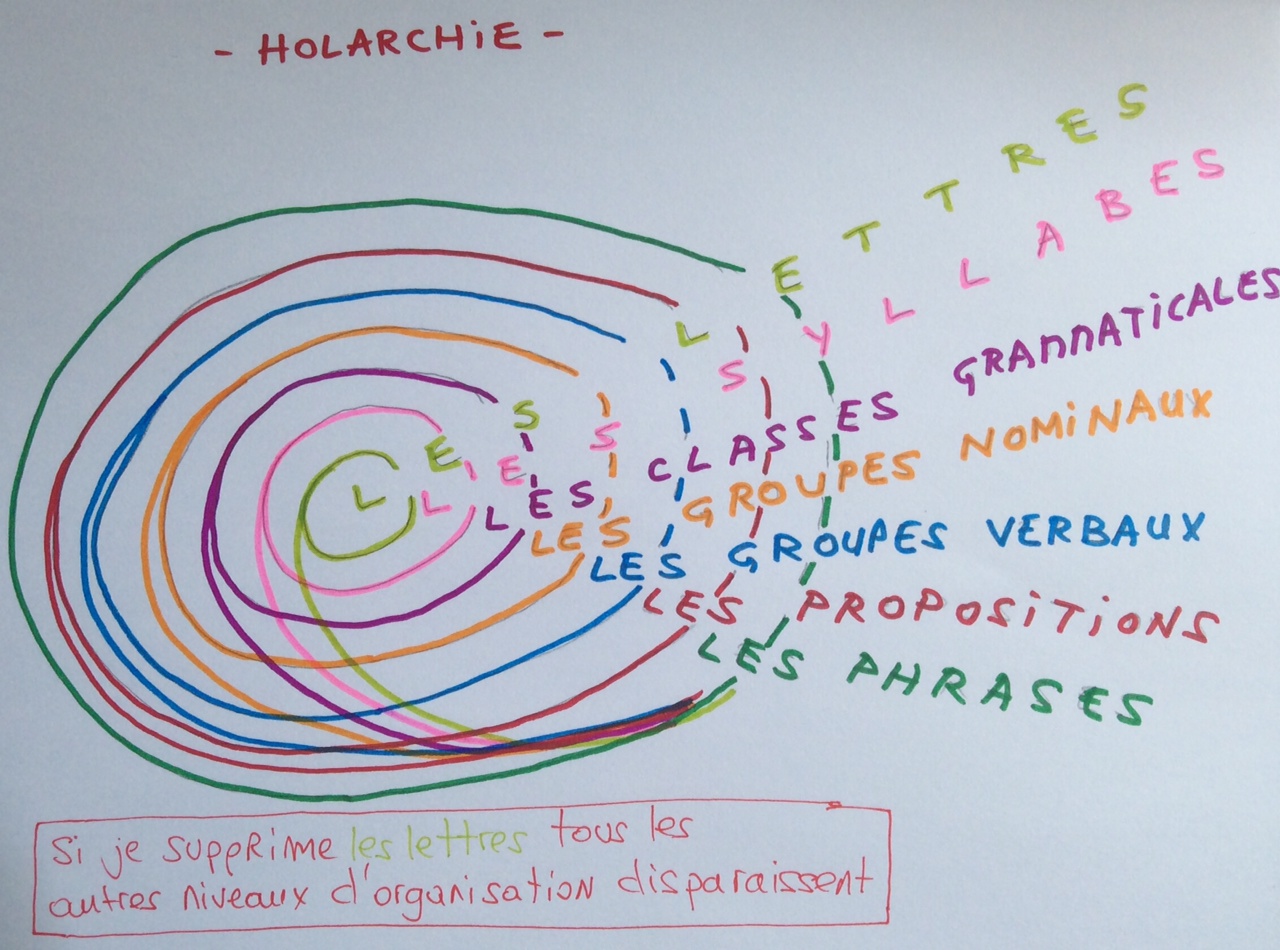 - HOLARCHiE -
LES LETTRES
LES SYLLABES
LES CLASSES GRAnnATiCALES
LES GROUPES NOMiNAUX
LES GROUPES VERBAUX
LES PROPOSiTiONS
LES PHRASES
Si je suppRiMe les lettres tous les
autres niveaux d'organisation disparaissent